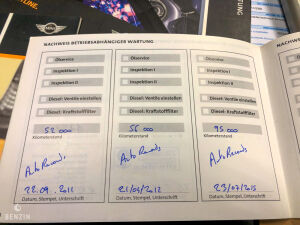 MINI
NACHWEIS BETRIEBSABHÄNGIGER WARTUNG.
Ölservice
Inspektion I
Inspektion II
Diesel: Ventile einstellen
Diesel: Kraftstofffilter
52 000
Kilometerstand
AutoRecords
Datum, Stempel, Unterschrift
Ölservice
Inspektion I
Inspektion II
Diesel: Ventile einstellen
Diesel: Kraftstofffilter
56 000
Kilometerstand
AutoRecords
Datum, Stempel, Unterschrift
Ölservice
Inspektion I
Inspektion II
Diesel: Ventile einstellen
Diesel: Kraftstofffilter
95 000
Kilometerstand
AutoRecords
23/07/2015
Datum, Stempel, Unterschrift
BENZIN